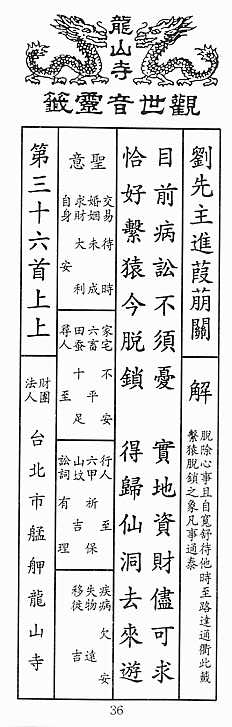 龍山寺
觀世音靈籤
劉先主進葭萌關
解
脫除心事且自寬舒待他時至路達通衢此籤
繫猿脫鎖之象凡事通泰
目前病訟不須憂 實地資財儘可求
恰好繫猿今脫鎖 得歸仙洞去來遊
聖意
交易待時
婚姻未成
求財大利
自身安
家宅不安
六畜平
田蚕十足
尋人至
行人至
六甲祈保
山墳吉
訟詞有理
疾病欠安
失物遠
移徙吉
第三十六首上上
財團
法人
台北市艋舺龍山寺
36